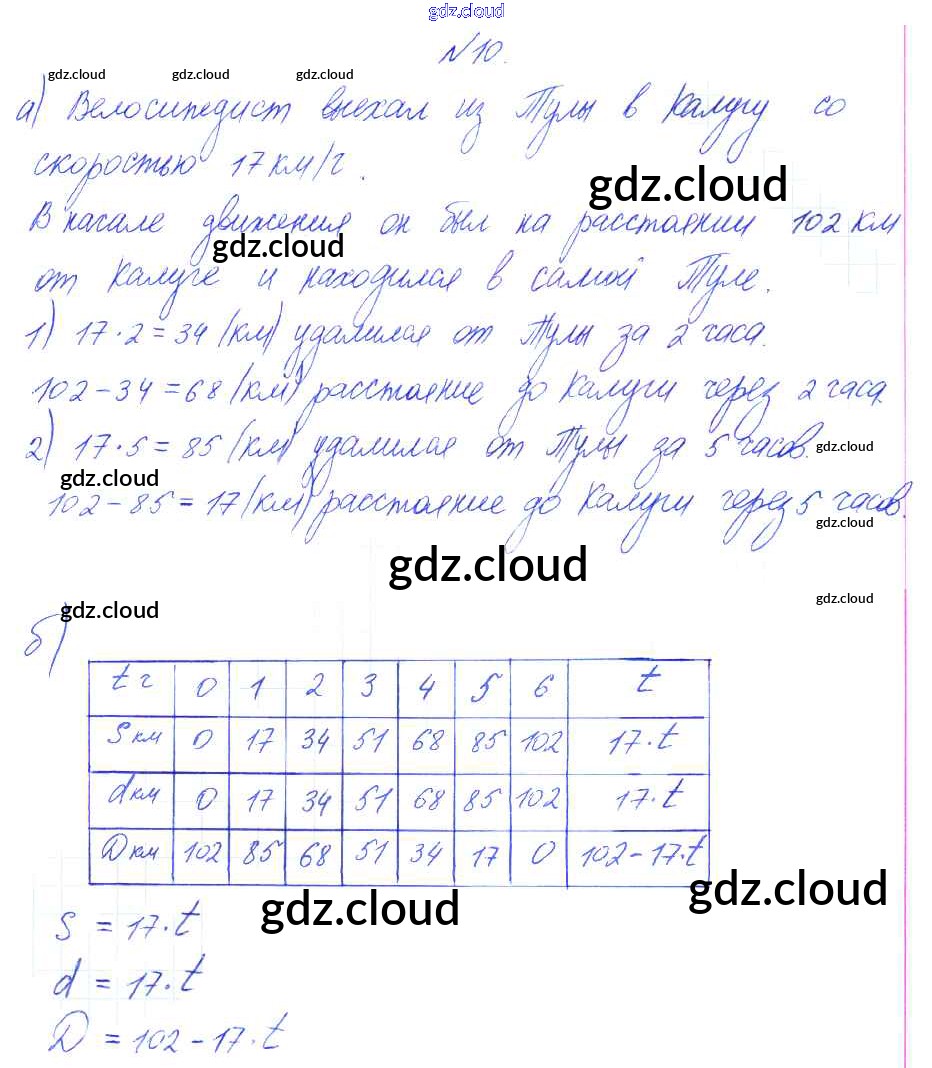 gdz.cloud
№10.
gdz.cloud gdz.cloud gdz.cloud
а) Велосипедист выехал из Тулы в Калугу со
скоростью 17 км/ч.
gdz.cloud
В начале движения он был на расстоянии 102 км
gdz.cloud
от Калуге и находился в самой Туле.
1) 17·2=34 (км) удалился от Тулы за 2 часа.
102-34=68 (км) расстояние до Калуги через 2 часа.
2) 17·5=85 (км) удалился от Тулы за 5 часов.
gdz.cloud
gdz.cloud
102-85=17 (км) расстояние до Калуги через 5 часов.
gdz.cloud
gdz.cloud
gdz.cloud
gdz.cloud
б)
t ч 0 1 2 3 4 5 6 t
S км 0 17 34 51 68 85 102 17·t
d км 0 17 34 51 68 85 102 17·t
D км 102 85 68 51 34 17 0 102-17·t
gdz.cloud
gdz.cloud
S = 17·t
d = 17·t
D = 102-17·t